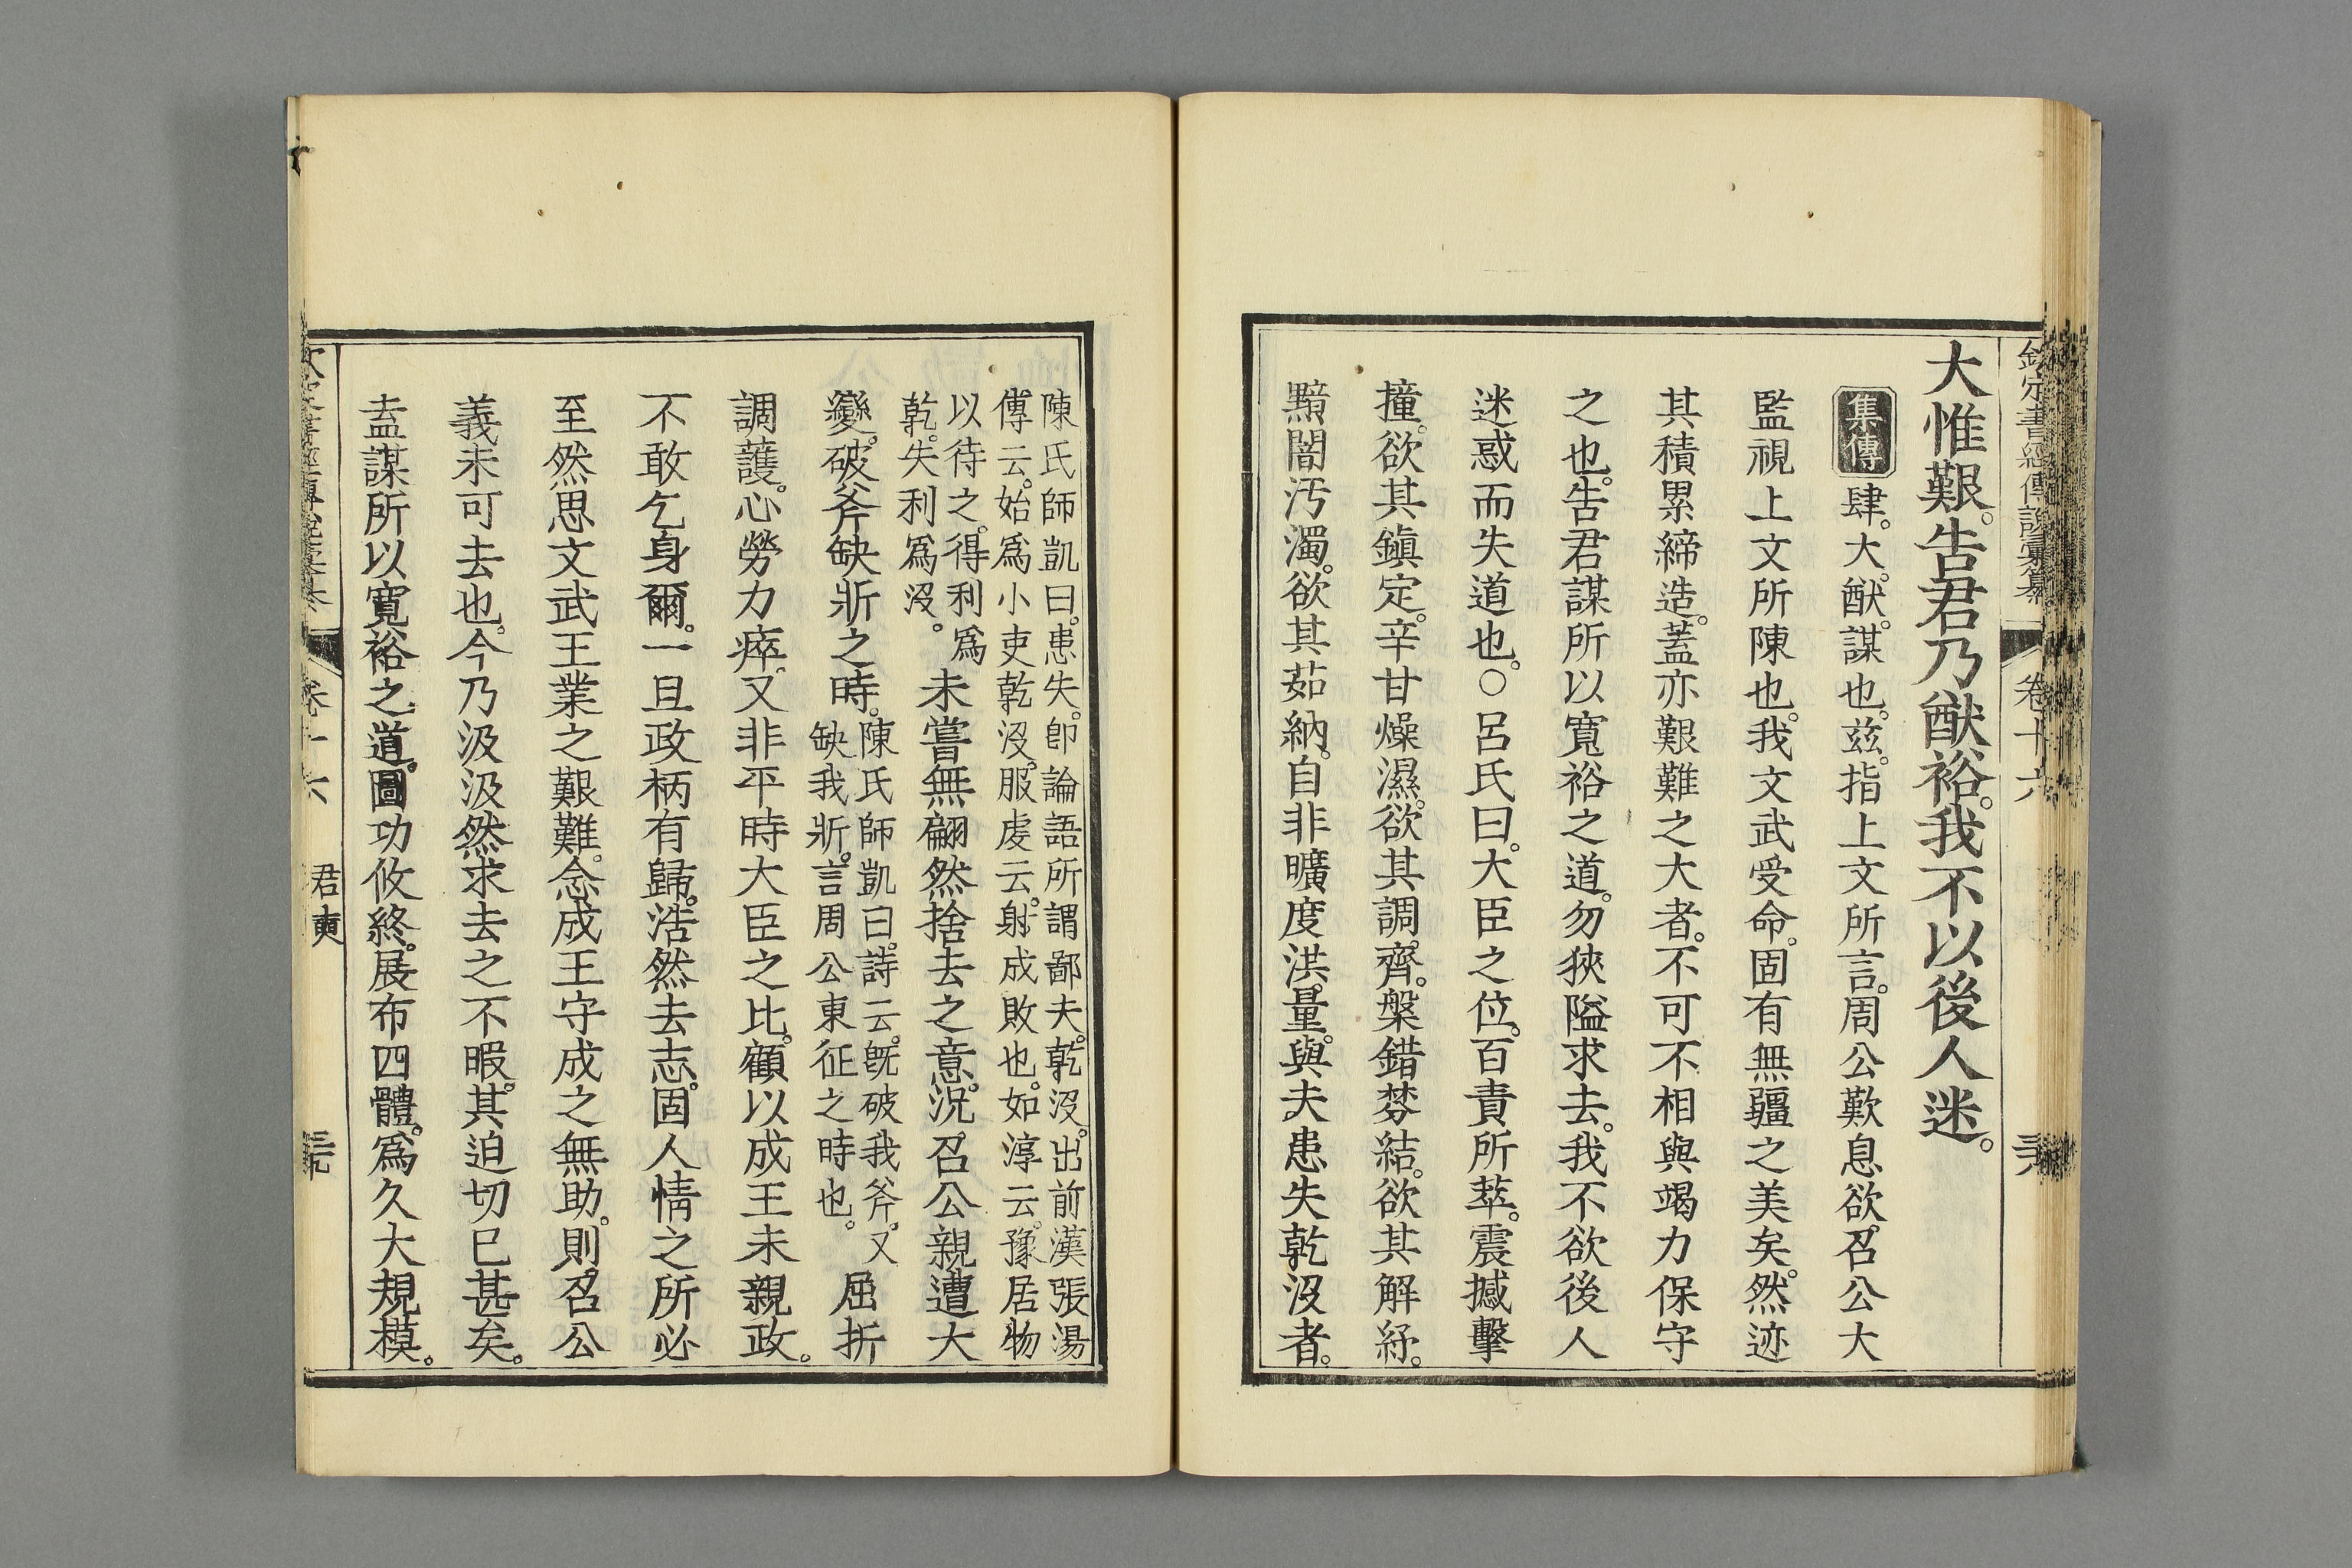 欽定書經傳說彙纂
卷十六
大惟艱。告君乃猷裕。我不以後人迷。
集傳
肆。大。猷。謀也。茲。指上文所言。周公歎息。欲召公大
監視上文所陳也。我文武受命。固有無疆之美矣。然迹
其積累締造。蓋亦艱難之大者。不可不相與竭力保守
之也。告君謀所以寬裕之道。勿狹隘求去。我不欲後人
迷惑而失道也。○呂氏曰。大臣之位。百責所萃。震撼擊
撞。欲其鎭定。辛甘燥濕。欲其調齊。槃錯棼結。欲其解紓。
黯闇汚濁。欲其茹納。自非曠度洪量。與夫患失乾沒者。
陳氏師凱曰。患失。卽論語所謂鄙夫。乾沒。出前漢張湯
傳云。始爲小吏乾沒。服虔云。射成敗也。如淳云。豫居物
以待之。得利爲
乾。失利爲沒。
未嘗無翩然捨去之意。況召公親遭大
變。破斧缺斨之時。
陳氏師凱曰。詩云。旣破我斧。又
缺我斨。言周公東征之時也。
屈折
調護。心勞力瘁。又非平時大臣之比。顧以成王未親政。
不敢乞身爾。一旦政柄有歸。浩然去志。固人情之所必
至。然思文武王業之艱難。念成王守成之無助。則召公
義未可去也。今乃汲汲然求去之不暇。其迫切已甚矣。
盍謀所以寬裕之道。圖功攸終。展布四體。爲久大規模。
卷十六
君奭